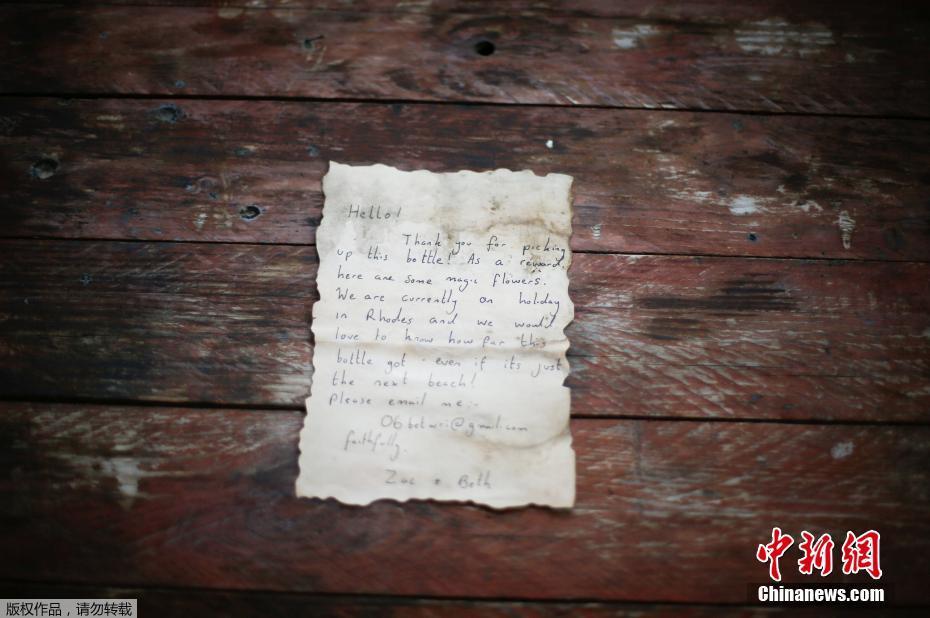 Hello!
Thank you for picking
up this bottle! As a reward,
here are some magic flowers.
We are currently on holiday
in Rhodes and we would
love to know how far this
bottle got - even if its just
the next beach!
Please email me:-
@gmail.com
faithfully.
Zac + Beth
中新网
Chinanews.com
版权作品，请勿转载